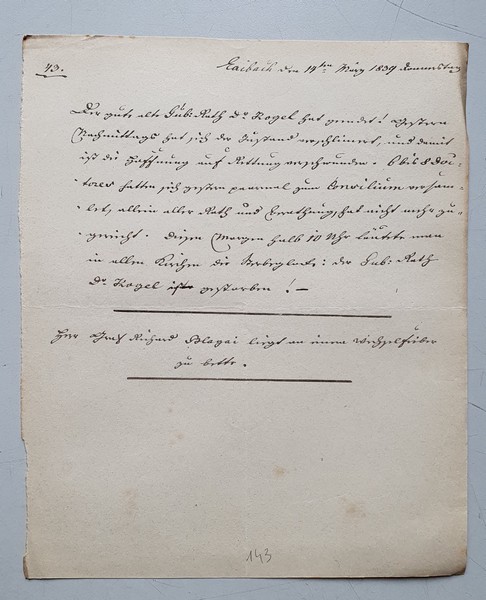 43.
Laibach den 14ten März 1839 Donnerstag
Der gute alte Gub: Rath Dr. Kogel hat geendet! Gestern
Nachmittags hat sich der Zustand verschlimert, und damit
ist die Hoffnung auf Rettung verschwunden. 6 bis 8 Doc-
tores hatten sich gestern paarmal zum Consilium versam-
let, allein aller Rath und Berathung hat nicht mehr zu-
gereicht. Diesen Morgen halb 10 Uhr läutete man
in allen Kirchen die Sterbeglocke: der Gub: Rath
Dr. Kogel ist gestorben! —
Herr Graf Richard Blagai liegt an einem Wechselfieber
zu bette.
143